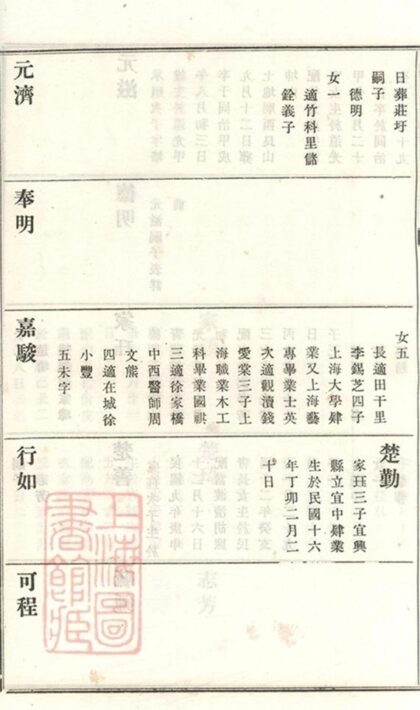 日葬莊圩
嗣子
德明
女一
適竹科里儲
銓義子
元濟
奉明
女五
長適田干里
李錫芝四子
上海大學肄
業又上海藝
專畢業士英
次適觀瀆錢
愛棠三子上
海職業木工
科畢業國祺
三適徐家橋
中西醫師周
文熊
四適在城徐
小豐
五未字
嘉駿
楚勤
家玨三子宜興
縣立宜中肄業
生於民國十六
年丁卯二月二
十日
行如
可程
上海圖書館藏